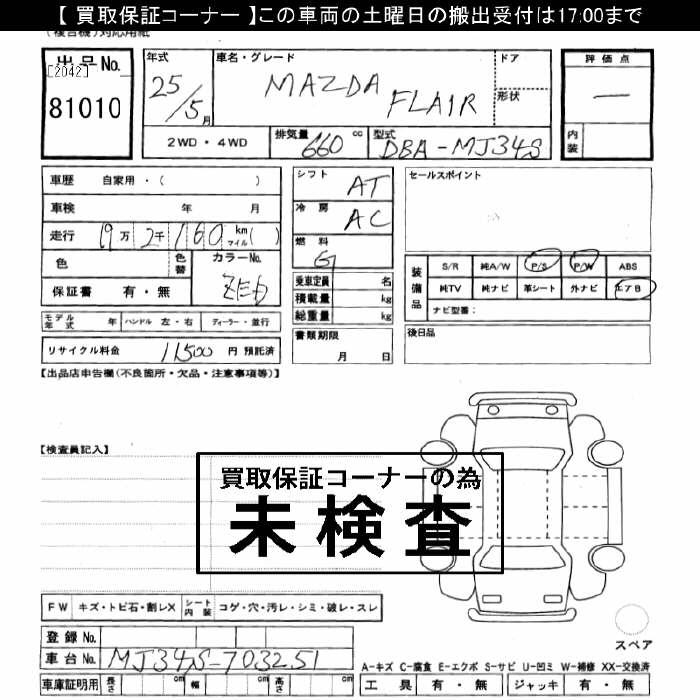 【 買取保証コーナー 】この車両の土曜日の搬出受付は17:00まで
(複合機)対応用紙
出品No. 年式 車名・グレード ドア 評価点
[2042]
81010 25/5月 MAZDA FLAIR 形状 —
2WD・4WD 排気量 660 cc 型式 DBA-MJ34S 内装
車歴 自家用・( ) シフト AT セールスポイント
車検 年 月 冷房 AC
走行 19万2千160 km(マイル)( ) 燃料 G
色 色替 カラーNo. ZED 乗車定員 名 装備品 S/R 純A/W P/S P/W ABS
保証書 有・無 積載量 kg 純TV 純ナビ 革シート 外ナビ エアB
総重量 kg ナビ型番:
モデル年式 年 ハンドル 左・右 ディーラー・並行 書類期限 後日品
リサイクル料金 11500 円 預託済 月 日
【出品店申告欄(不良箇所・欠品・注意事項等)】
【検査員記入】
買取保証コーナーの為
未検査
FW キズ・トビ石・割レX シート内装 コゲ・穴・汚レ・シミ・破レ・スレ
登録No. スペア
車台No. MJ34S-703251 A-キズ C-腐食 E-エクボ S-サビ U-凹ミ W-補修 XX-交換済
車庫証明用 長さ cm 幅 cm 高さ cm 工具 有・無 ジャッキ 有・無